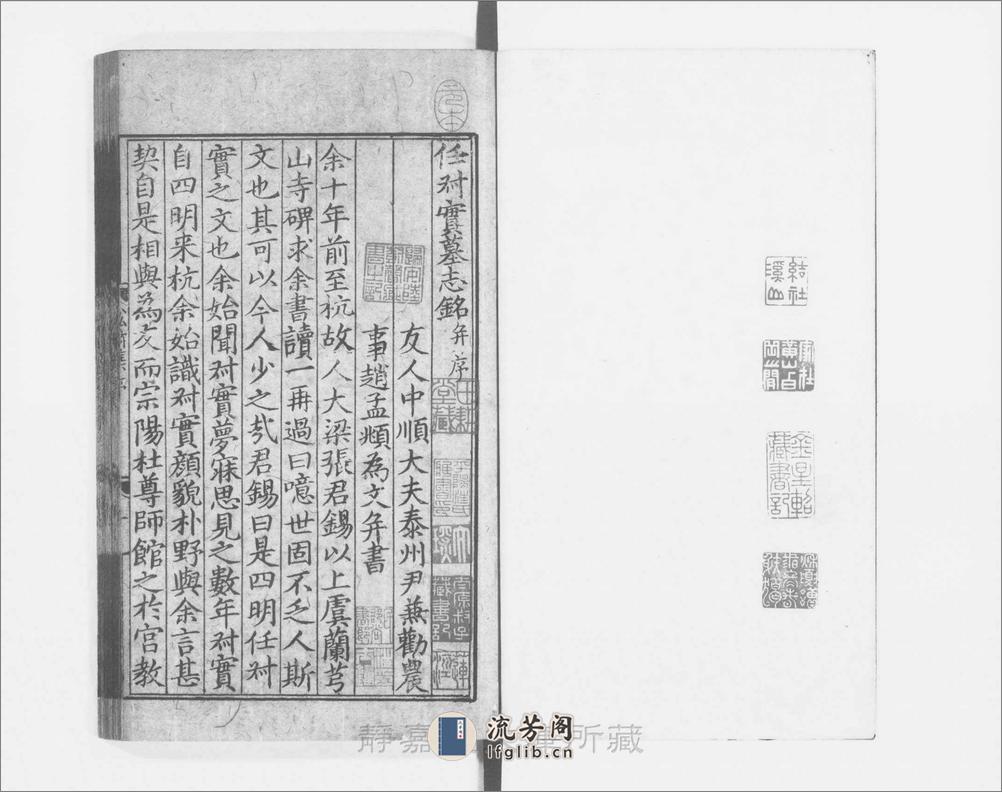 任叔實墓志銘并序
友人中順大夫泰州尹兼勸農
事趙孟頫為文并書
余十年前至杭故人大梁張君錫以上虞蘭芎
山寺碑求余書讀一再過曰噫世固不乏人斯
文也其可以今人少之㢤君錫曰是四明任叔
實之文也余始聞叔實夢寐思見之數年叔實
自四明来杭余始識叔實顔貌朴野與余言甚
契自是相與為友而宗陽杜尊師館之於宮教
結社
溪山
金星軺
藏書記
静嘉
所藏
流芳阁
lfglib.cn